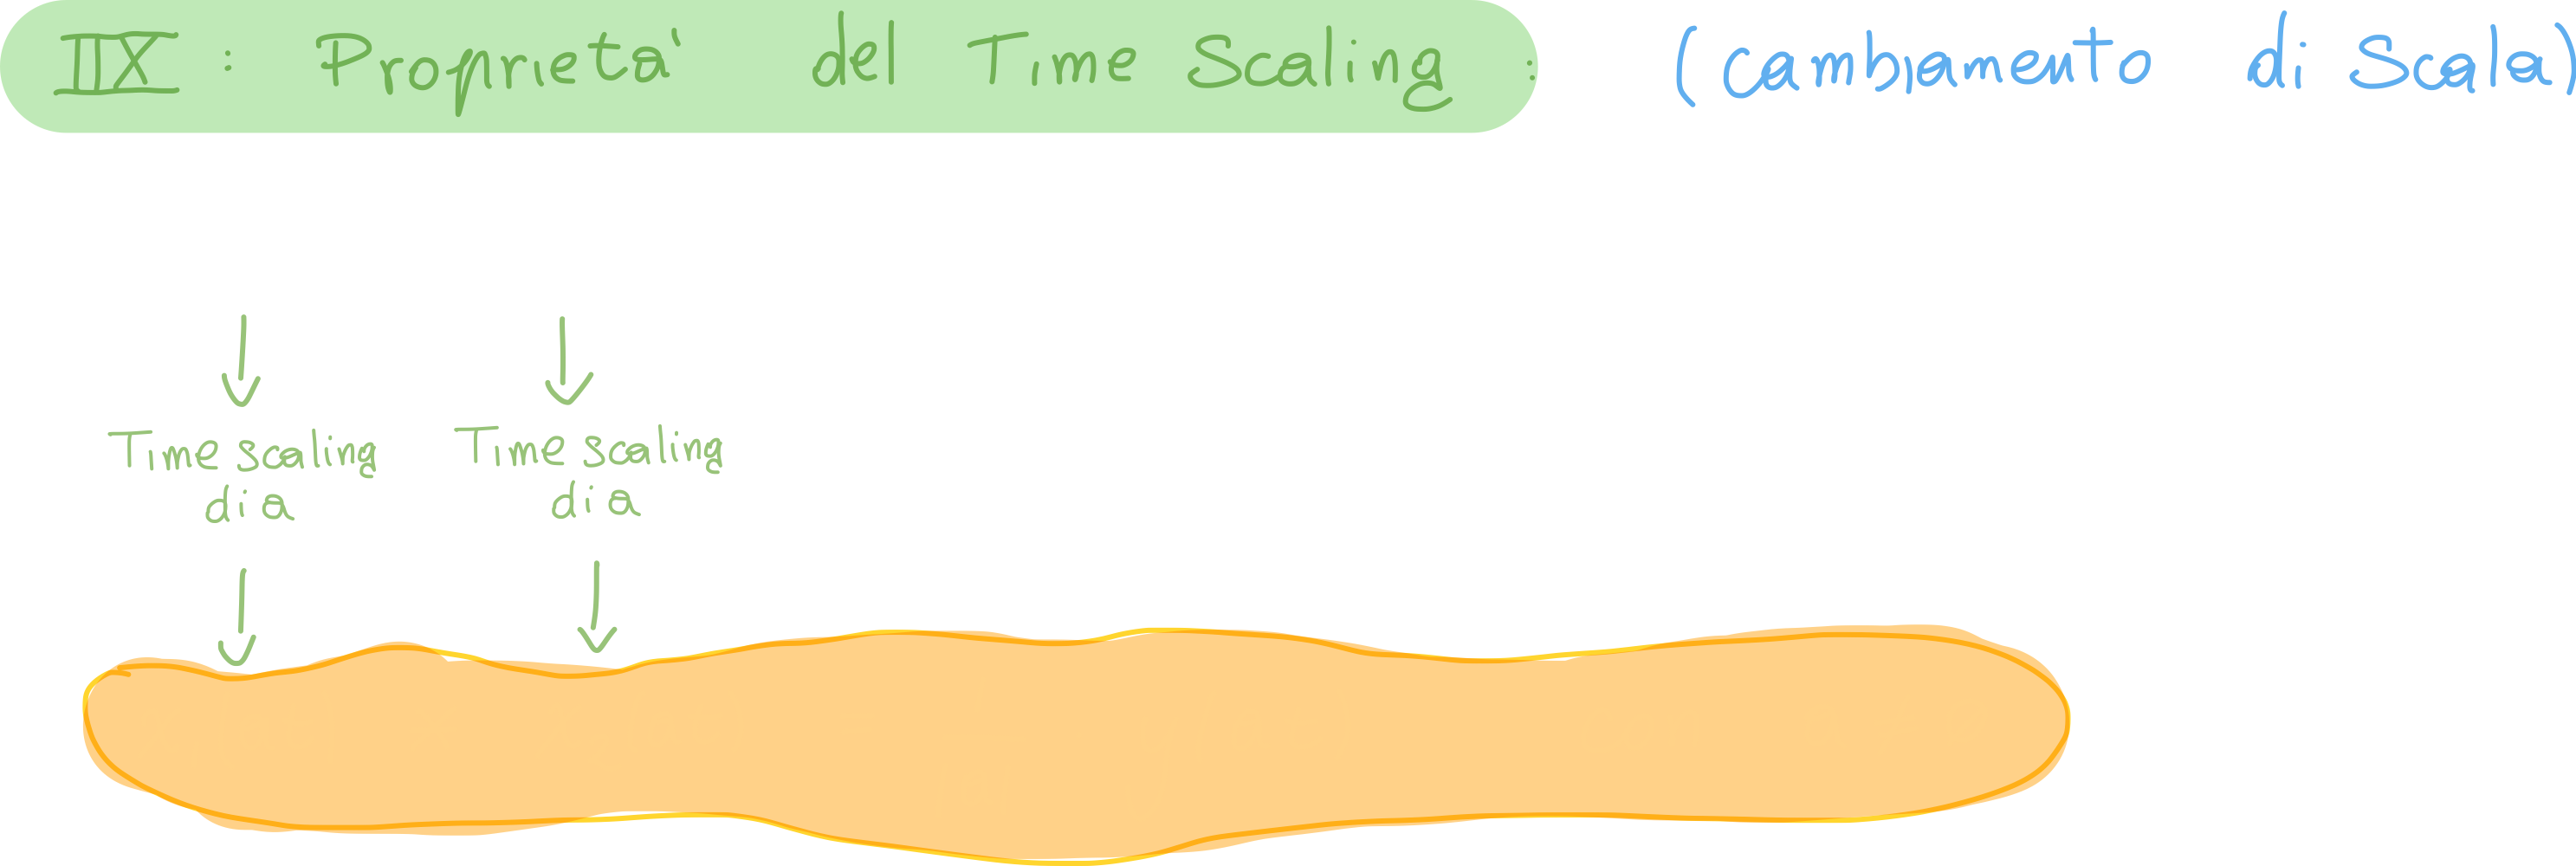 IIX : Proprieta' del Time Scaling : (cambiamento di Scala)
Time scaling Time scaling
di a di a